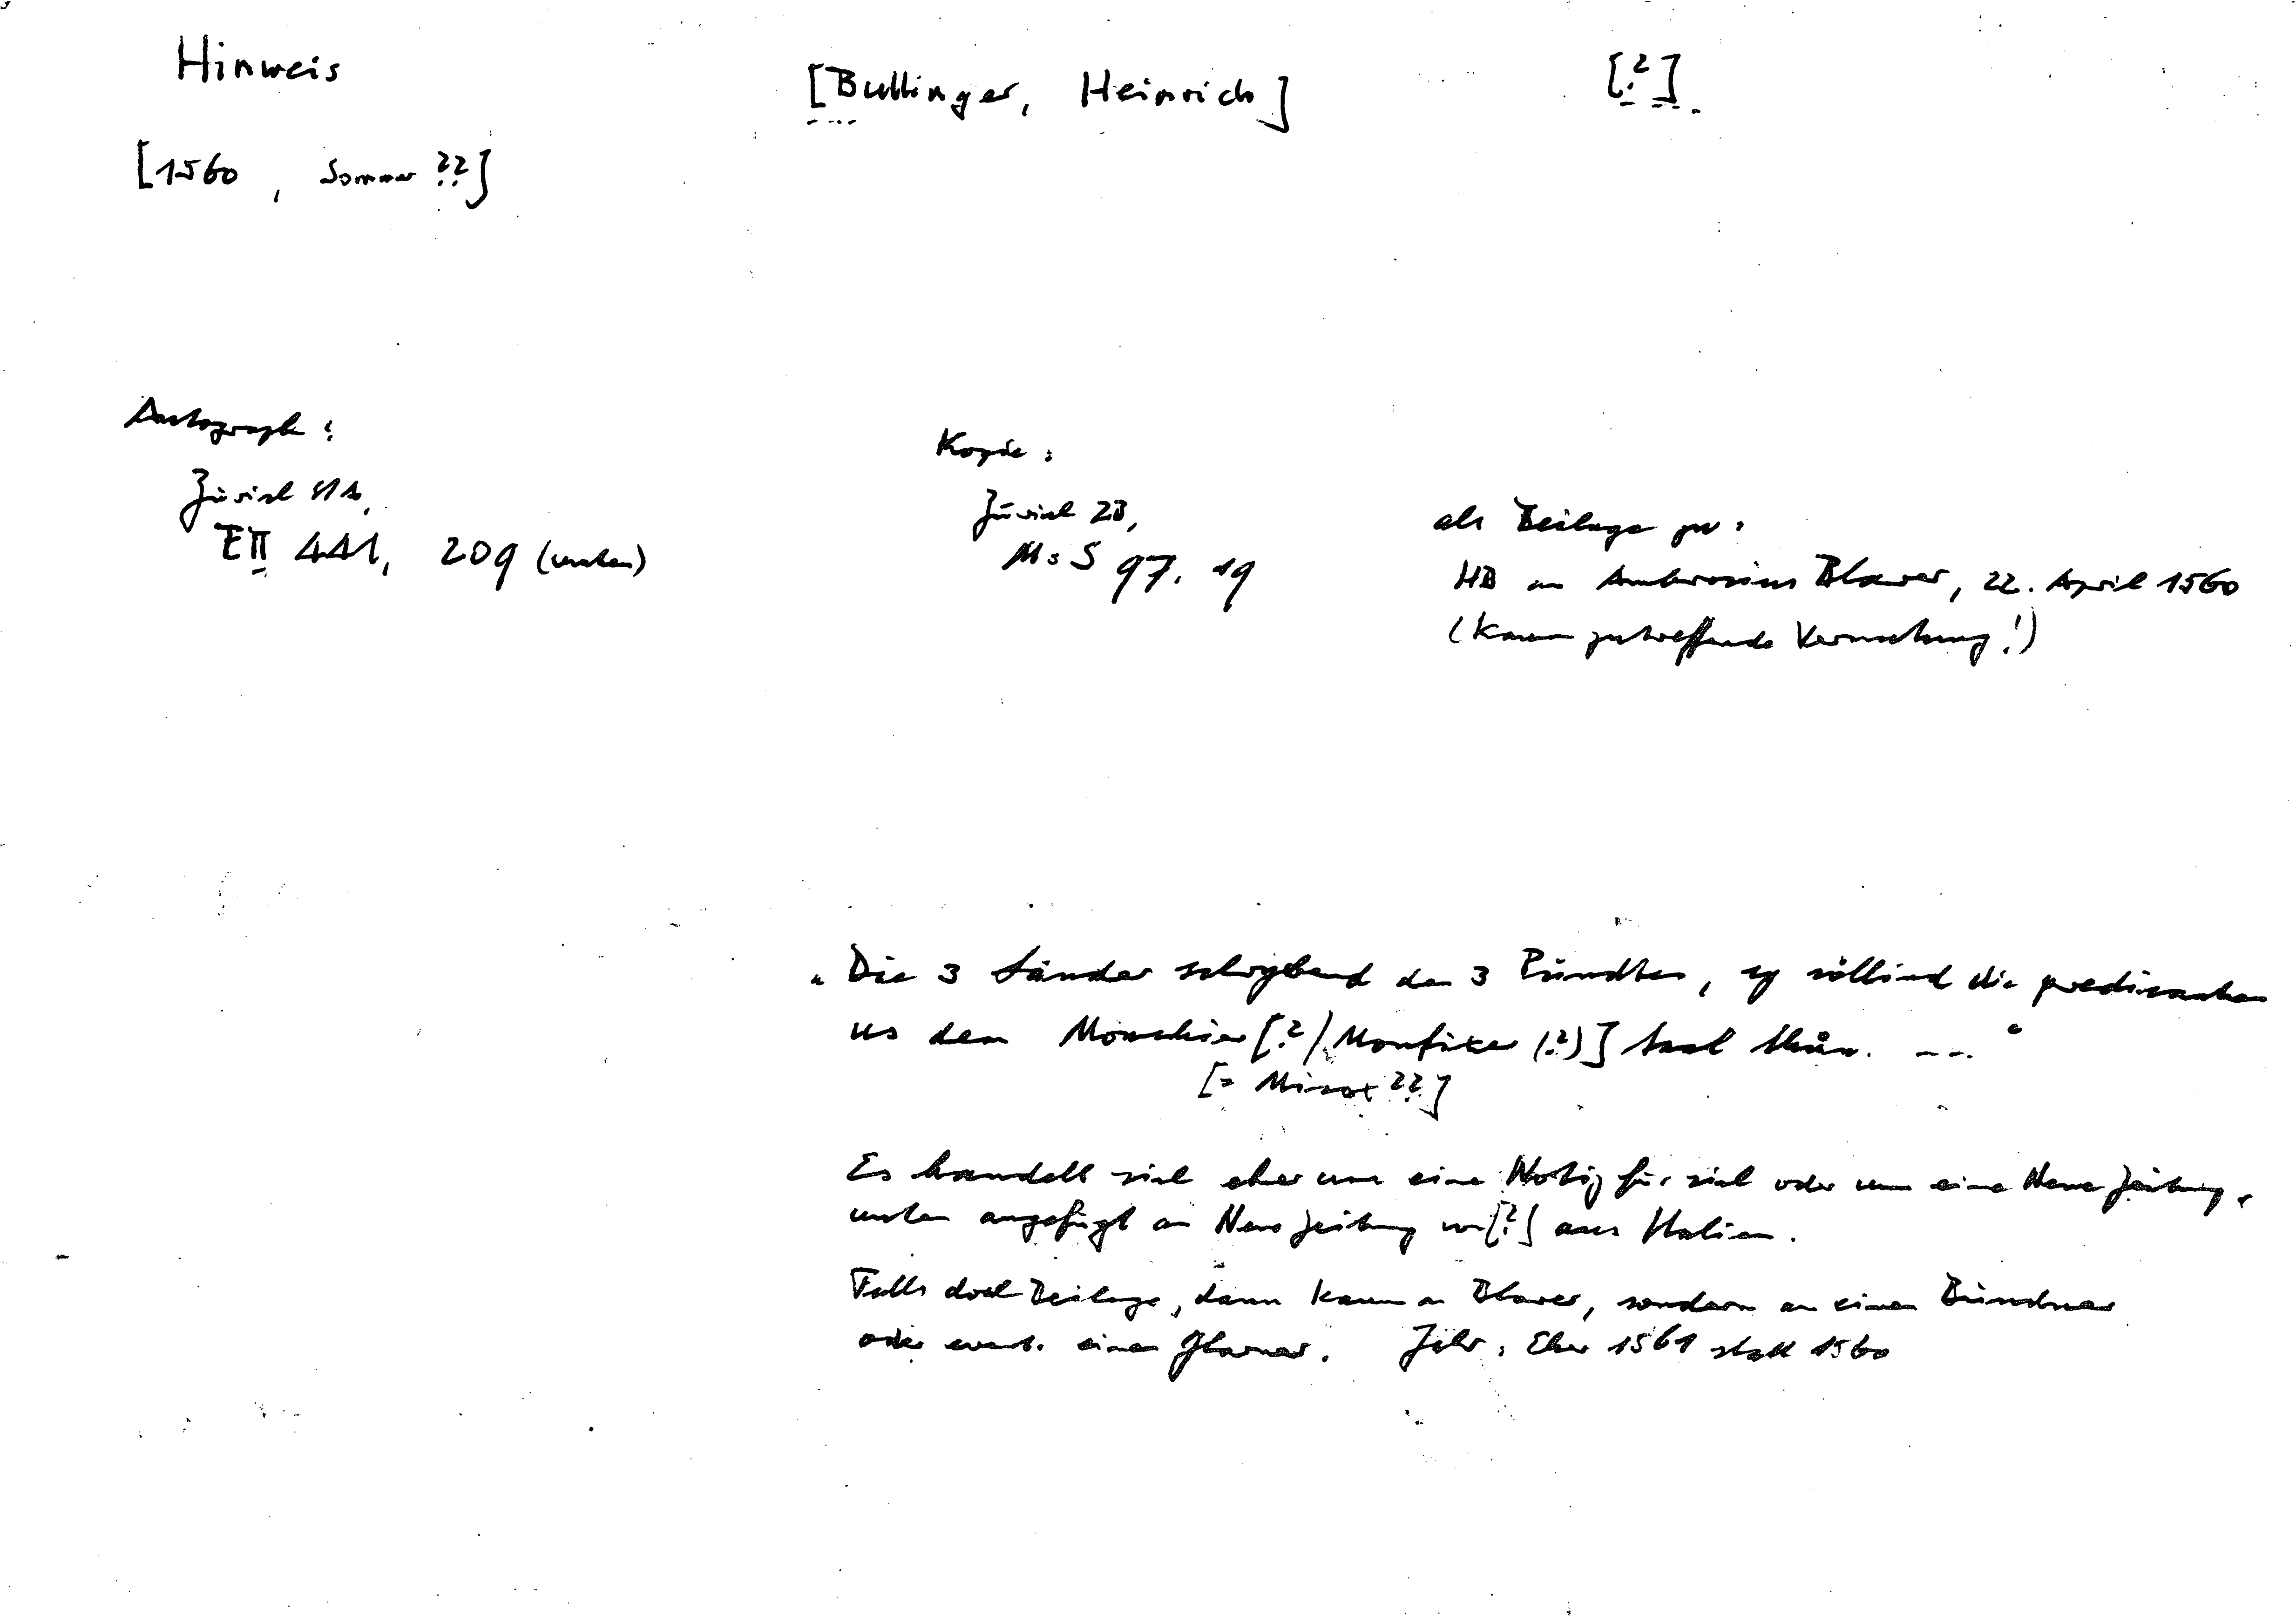 Hinweis
[Bullinger, Heinrich]
[?]
[1560, Sommer ??]
Autograph:
Zürich StA,
E II 441, 209 (unten)
Kopie:
Zürich ZB,
Ms S 97, 19
als Beilage zu:
HB an Ambrosius Blarer, 22. April 1560
(Kaum zutreffende Vermutung!)
"Die 3 Länder schrybend den 3 Pündten, sy söllind die predicanten
us dem [?/ Monfixer (?)] taal thůn. ---"
[= Misox ??]
Es handelt sich eher um eine Notiz für sich oder um eine Neue Zeitung,
unten angefügt an Neue Zeitung von [?] aus Italien.
Falls doch Beilage, dann kaum an Blarer, sondern an einen Bündner
oder event. einen Glarner. Jahr: Eher 1561 statt 1560